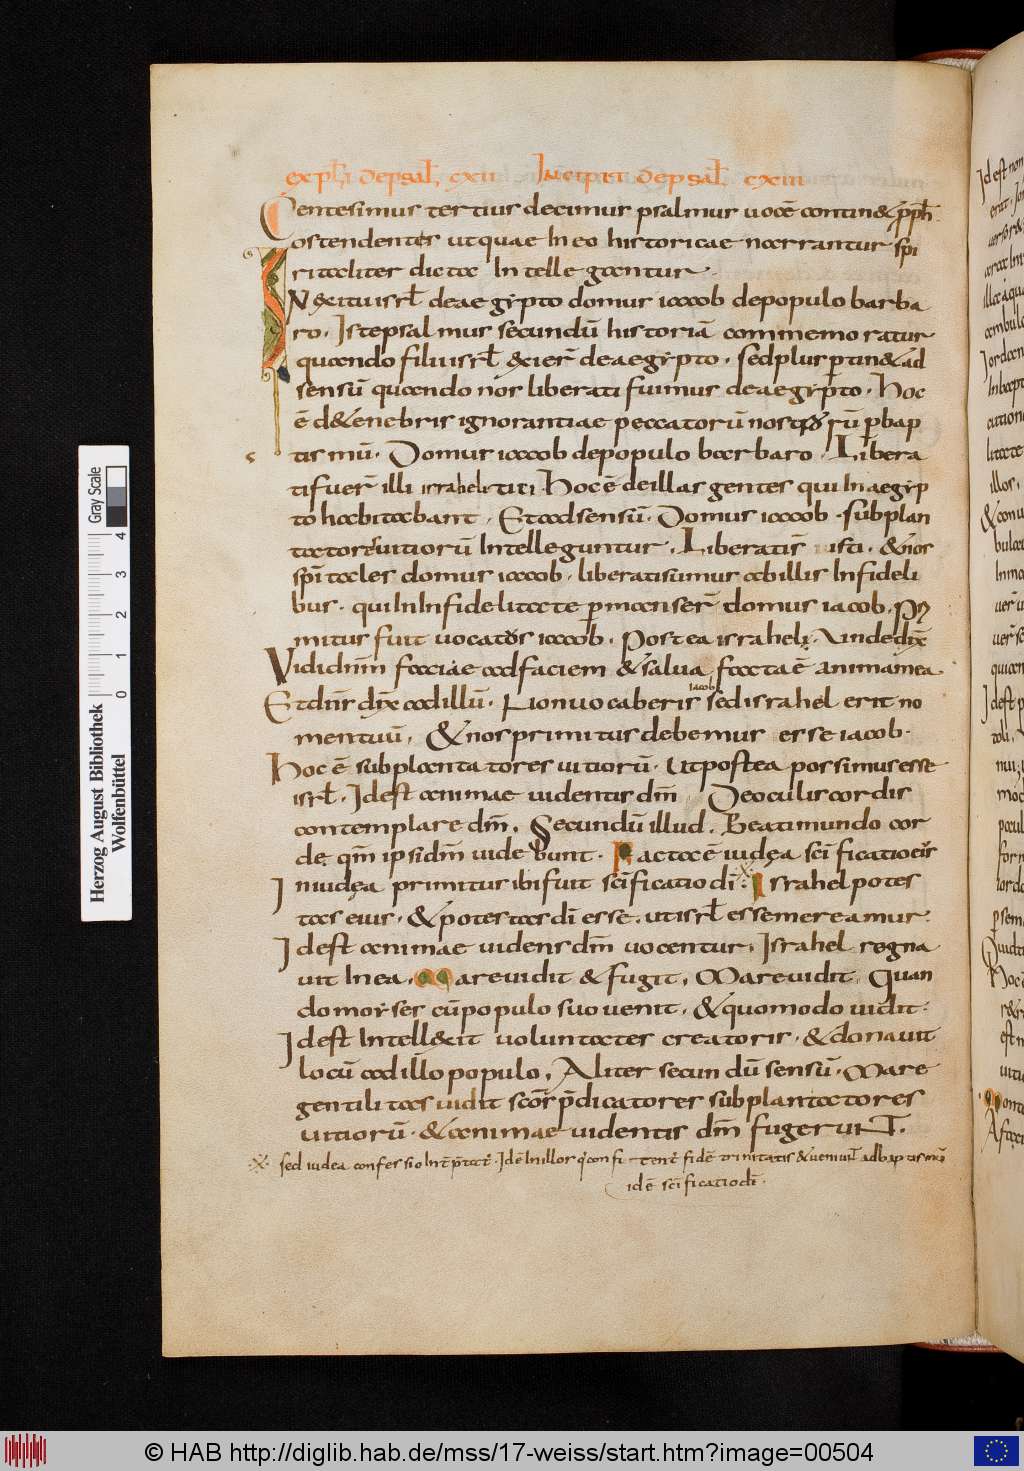 expł̄ı de psał cxii Incipit de psał cxiii
Centesimus tertius decimus psalmus uocē contin& pph̄
ostendentes ut quae In eo historicae narrantur spi
ritaliter dicta Intellegantur.
IN exitu isrł de aegypto domus iacob de populo barba
ro. Iste psalmus secundū historiā commemoratur
quando filii isrł exier̄ de aegypto. sed plus ptin& ad
sensū quando nos liberati fuimus de aegypto. Hoc
ē de tenebris ignorantiae peccatorū nostrorū p bap
tismū. Domus iacob de populo barbaro. Libera
ti fuer̄ illi israheliti. Hoc ē de illas gentes qui In aegyp
to habitabant. Et ad sensū. Domus iacob. subplan
tatores uitiorū Intelleguntur. Liberati s̄ isti. & nos
spitales domus iacob. liberati sumus ab illis Infideli
bus. qui In Infidelitate pmanser̄ domus iacob. Pri
mitus fuit uocatus iacob. Postea israhel. Unde dix̄
Vidi dn̄m facie ad faciem & salua facta ē anima mea
Et dn̄s dix̄ ad illū. Non uocaberis iacob sed israhel erit no
men tuū. & nos primitus debemus esse iacob.
Hoc ē subplantatores uitiorū. Ut postea possimus esse
isrł. Id est animae uidentis dm̄ De oculis cordis
contemplare dm̄. Secundū illud. Beati mundo cor
de qm̄ ipsi dm̄ uidebunt. Facta ē iudęa sc̄ificatio eius
In iudęa primitus ibi fuit sc̄ificatio dī. Israhel potes
tas eius. & potestas dī esse. ut isrł esse mereamur.
Id est animae uidens dm̄ uocentur. Israhel regna
uit In ea. Mare uidit & fugit. Mare uidit. Quan
do moyses cū populo suo uenit. & quomodo uidit.
Id est Intellexit uoluntates creatoris. & donauit
locū ad illo populo. Aliter secundū sensū. Mare
gentilitas uidit scōs p̄dicatores subplantatores
uitiorū. & animae uidentis dm̄ fugerunt.
sed iudea confessio Int̄p̄tat̄. Id ē In illos q̇ confitent̄ fidē trinitatis & ueniunt ad baptismū
id ē sc̄ificatio dī.
Gray Scale
0 1 2 3 4
Herzog August Bibliothek
Wolfenbüttel
© HAB http://diglib.hab.de/mss/17-weiss/start.htm?image=00504